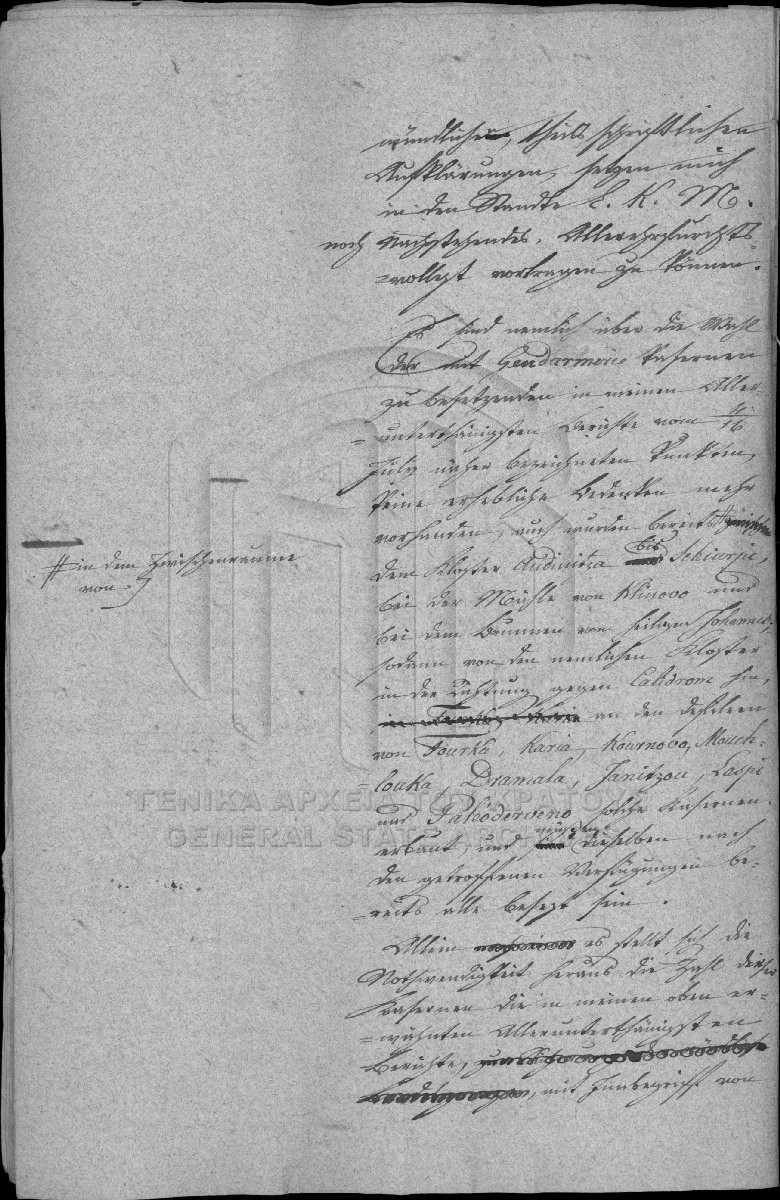 mündlichen, theils schriftlichen
Aufklärungen, setzen mich
in den Standte E. K. M.
noch Nachstehendes, Allerehrfurchts-
=vollest vortragen zu können.
Es sind nemlich über die Wahl
der mit Gendarmerie Kasernen
zu besetzenden in meinen Aller-
=unterthänigsten Berichte vom 4/16
July näher bezeichneten Punkten,
keine erhebliche Bedenken mehr
vorhanden, auch wurden bereits #
# in dem Zwischenraume
von
dem Kloster Andinitza bis
bei der Mühle von Klinovo und
bei dem Brunnen von heiligen Johannes,
sodann von den nemlichen Kloster
in der Richtung gegen Calidrone hin,
an den Defileen
von Fourka, Karia, Kournovo, Mouch-
louka, Dramala, Janitzou, Laspi
und Paleoderveno solche Kasernen
erbaut, und dieselben nach
den getroffenen Verfügungen be-
=reits alle besezt sein.
Allein es stellt sich die
Nothwendigkeit heraus die Zahl dieser
Kasernen die in meinen oben er-
=wähnten Allerunterthänigsten
Berichte,
mit Innbegriff von
ΓΕΝΙΚΑ ΑΡΧΕΙΑ ΤΟΥ ΚΡΑΤΟΥΣ
GENERAL STATE ARCHIVES